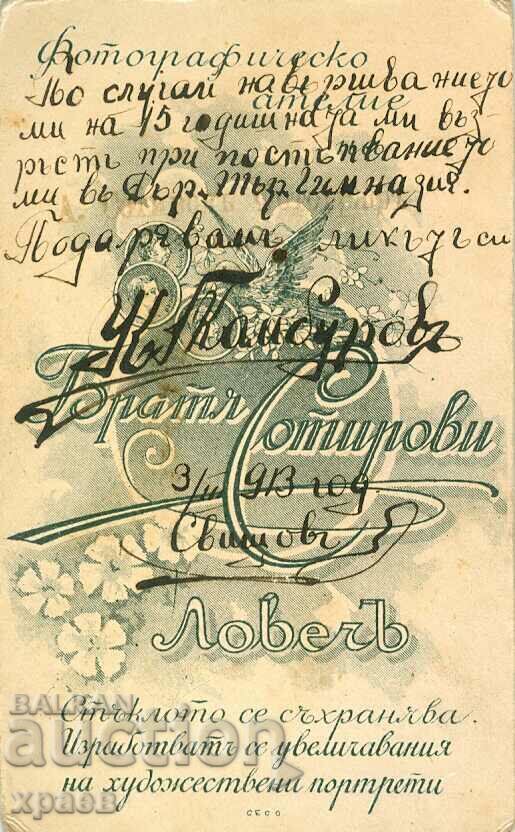 Фотографическо
ателие
По случай навършваниего
ми на 15 годишната ми въз-
ръсть при постѫпваниего
ми въ Дър. Тър. Гимназия.
Подарявамъ ликътъ си
Танбуровъ
Братя Сотирови
3/II 913 год
Свищовъ
Ловечъ
Стъклото се съхранява.
Изработватъ се увеличавания
на художествени портрети
BALKAN
auction
храев